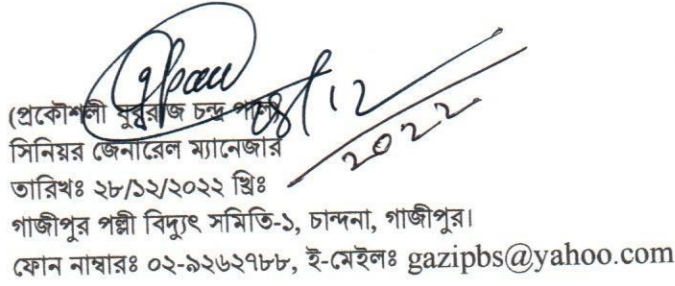 (প্রকৌশলী যুবরাজ চন্দ্র পাল)
সিনিয়র জেনারেল ম্যানেজার
তারিখঃ ২৮/১২/২০২২ খ্রিঃ
গাজীপুর পল্লী বিদ্যুৎ সমিতি-১, চান্দনা, গাজীপুর।
ফোন নাম্বারঃ ০২-৯২৬২৭৮৮, ই-মেইলঃ gazipbs@yahoo.com
28/12/2022